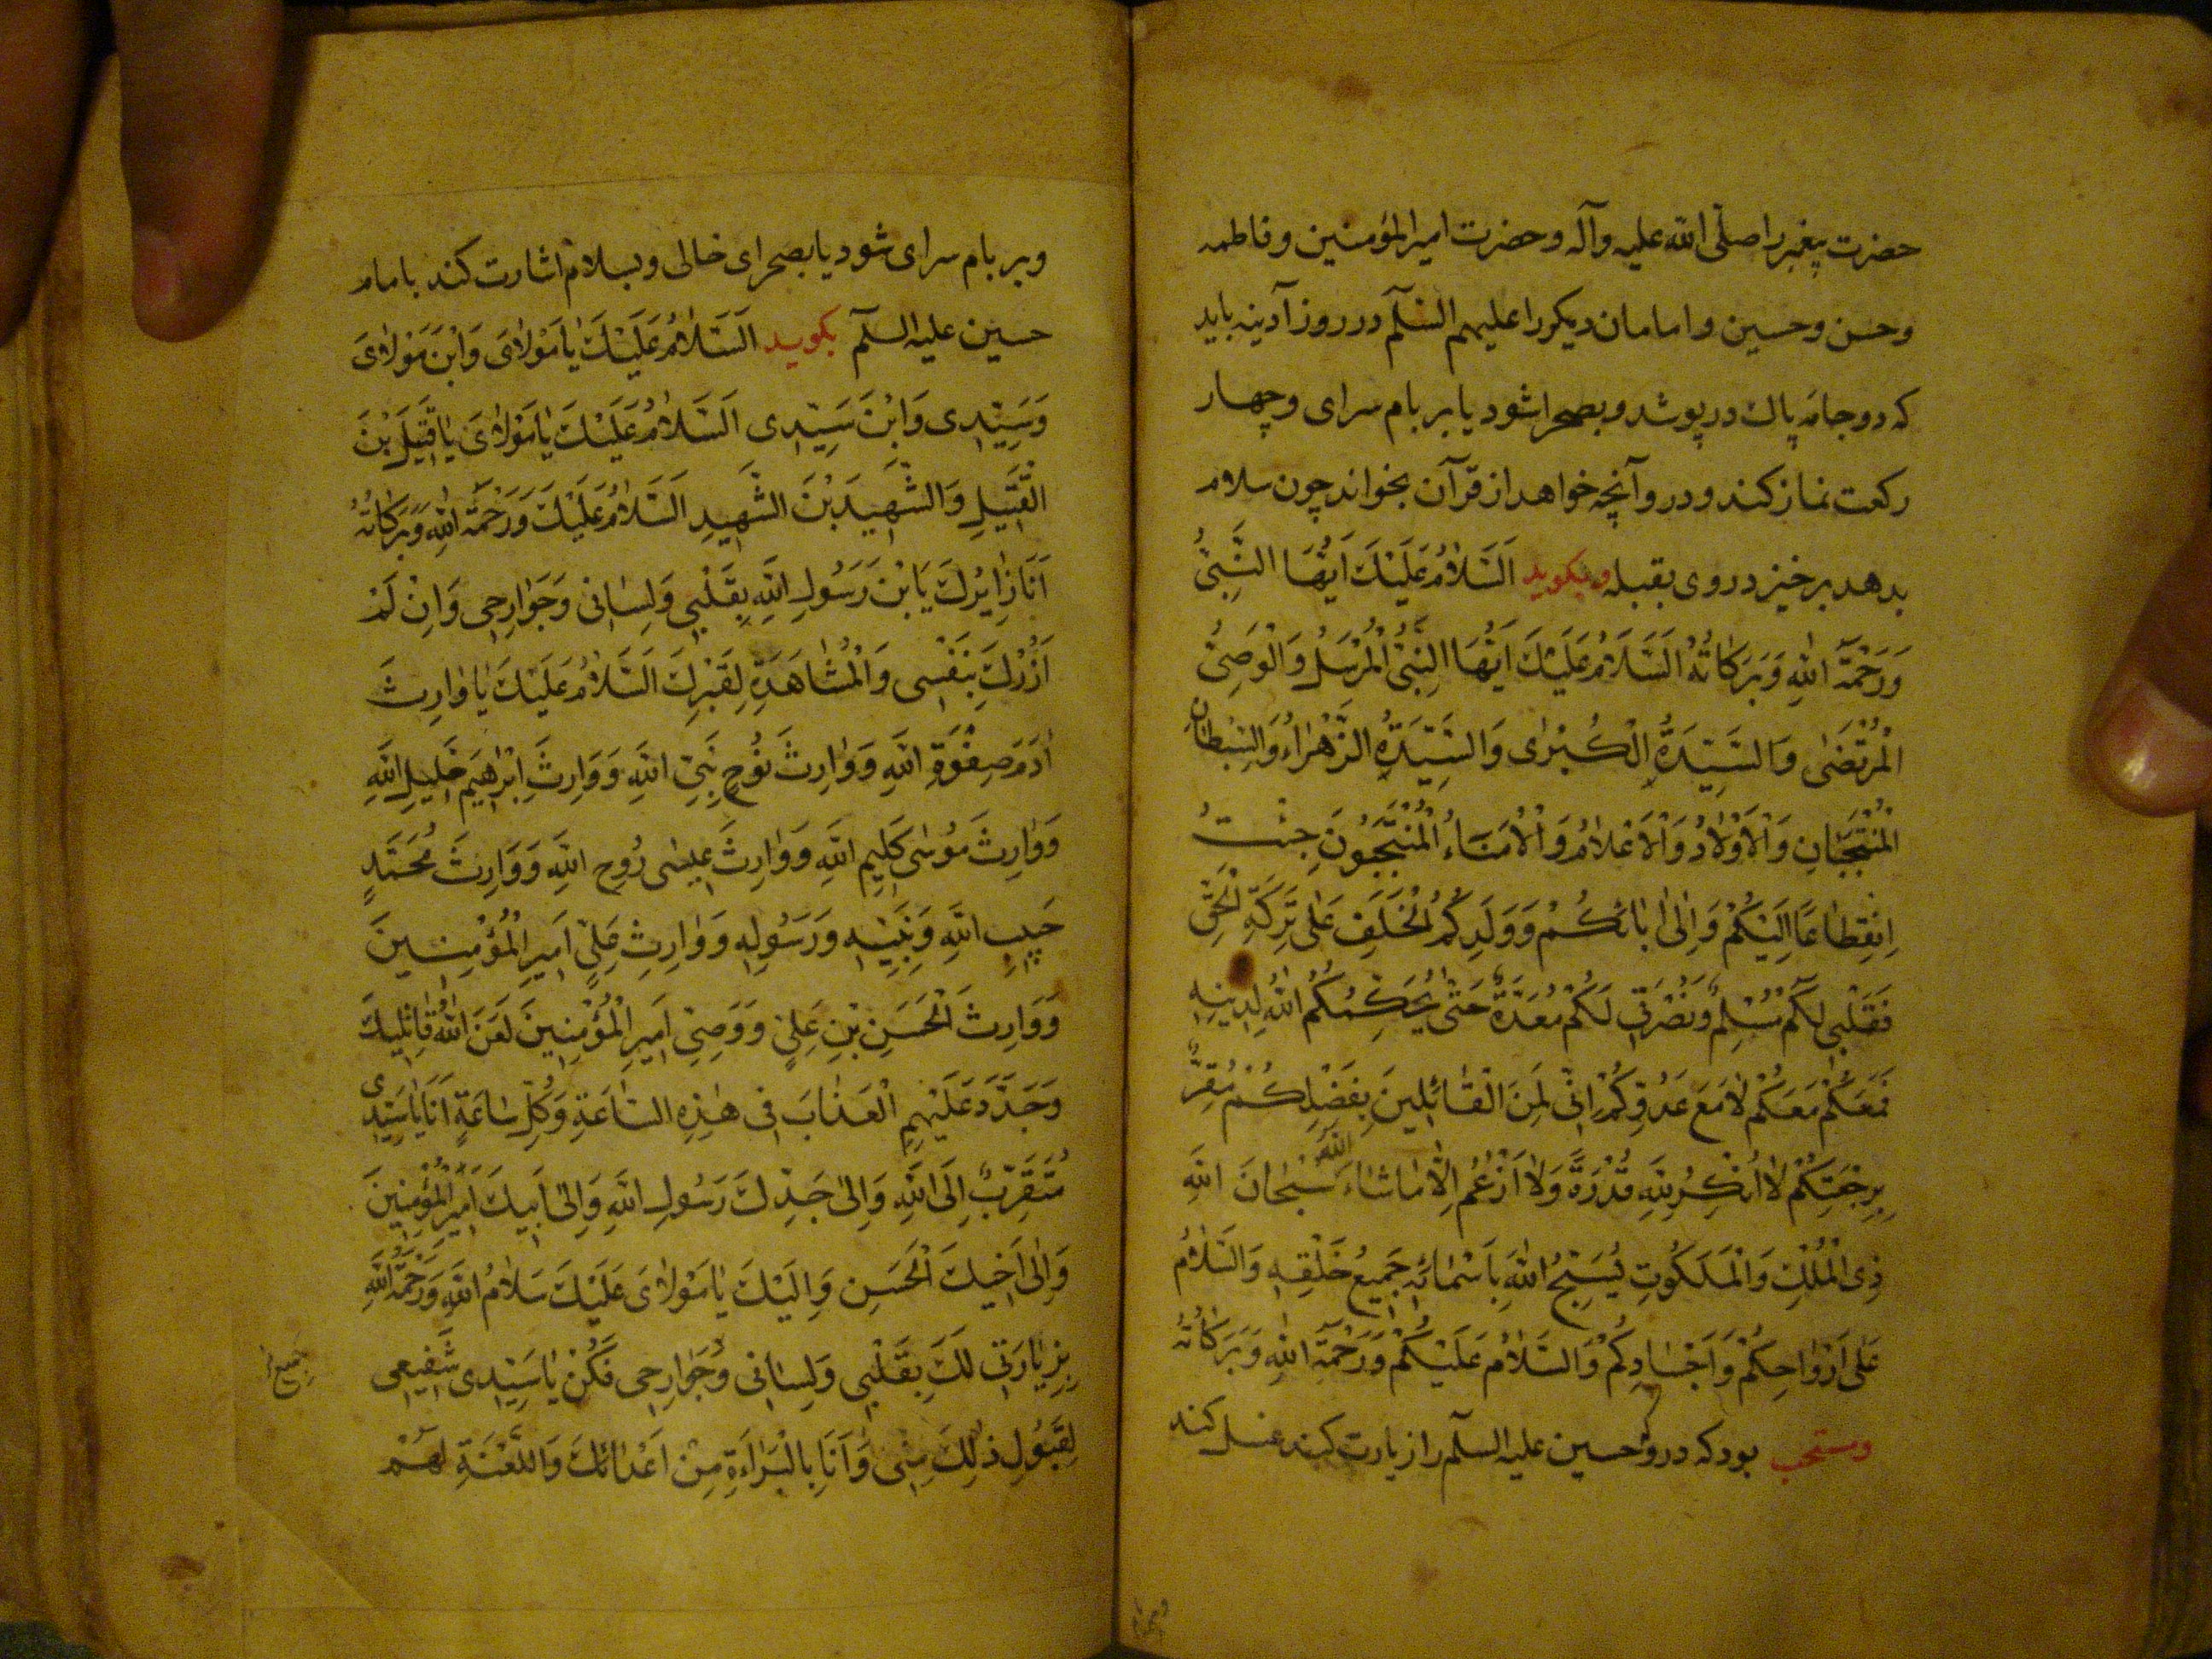 حضرت پیغمبر را صلّی اللّه علیه وآله وحضرت امیر المؤمنین وفاطمه
وحسن وحسین وامامان دیکر را علیهم السّلم در روز آدینه باید
که دو جامۀ پاك در پوشد وبصحرا شود یا بر بام سرای وچهار
رکعت نماز کند ودر وآنچه خواهد از قرآن بخواند چون سلام
بدهد برخیزد روی بقبله وبکوید اَلسَّلامُ عَلَيْكَ اَيُّهَا النَّبِىُّ
وَرَحْمَةُ اللهِ وَبَرَكاتُهُ اَلسَّلامُ عَلَيْكَ اَيُّهَا النَّبِىُّ الْمُرْسَلُ وَالْوَصِىُّ
الْمُرْتَضٰى وَالسَّيِّدَةُ الْكُبْرٰى وَالسَّيِّدَةُ الزَّهْرٰاءُ وَالسِّبْطانِ
الْمُنْتَجَبَانِ وَالْاَوْلادُ وَالْاَعْلامُ وَالْاُمَنَاءُ الْمُنْتَجَبُونَ جِئْتُ
اِنْقِطاعًا اِلَيْكُمْ وَاِلٰى اٰبائِكُمْ وَوَلَدِكُمُ الْخَلَفِ عَلٰى تَرِكَةِ الْحَقِّ
فَقَلْبِى لَكُمْ مُسْلِمٌ وَنُصْرَتِى لَكُمْ مُعَدَّةٌ حَتّٰى يُحَكِّمَكُمُ اللهُ لِدِينِهِ
فَمَعَكُمْ مَعَكُمْ لٰا مَعَ عَدُوِّكُمْ اِنِّى لَمِنَ الْقٰائِلِينَ بِفَضْلِكُمْ مُقِرٌّ
بِرَجْعَتِكُمْ لٰا اُنْكِرُ لِلّٰهِ قُدْرَةً وَلٰا اَزْعُمُ اِلّٰا مٰا شٰاءَ اللّٰهُ سُبْحَانَ اللهِ
ذِى الْمُلْكِ وَالْمَلَكُوتِ يُسَبِّحُ اللهَ بِاَسْمٰائِهِ جَمِيعُ خَلْقِهِ وَالسَّلٰامُ
عَلٰى اَرْوٰاحِكُمْ وَاَجْسٰادِكُمْ وَالسَّلٰامُ عَلَيْكُمْ وَرَحْمَةُ اللهِ وَبَرَكٰاتُهُ
ومستحب بود که در وحسین علیه السلم را زیارت کند غسل کند
وبر بام سرای شود یا بصحرای خالی وبسلام اشارت کند بامام
حسین علیه السلم بکوید اَلسَّلٰامُ عَلَيْكَ يٰا مَوْلٰاىَ وَابْنَ مَوْلٰاىَ
وَسَيِّدِى وَابْنَ سَيِّدِى اَلسَّلٰامُ عَلَيْكَ يٰا مَوْلٰاىَ يٰا قَتِيلَ بْنَ
الْقَتِيلِ وَالشَّهِيدَ بْنَ الشَّهِيدِ اَلسَّلٰامُ عَلَيْكَ وَرَحْمَةُ اللهِ وَبَرَكٰاتُهُ
اَنَا زٰايِرُكَ يَابْنَ رَسُولِ اللهِ بِقَلْبِى وَلِسٰانِى وَجَوٰارِحِى وَاِنْ لَمْ
اَزُرْكَ بِنَفْسِى وَالْمُشٰاهَدَةِ لِقَبْرِكَ اَلسَّلٰامُ عَلَيْكَ يٰا وٰارِثَ
اٰدَمَ صِفْوَةِ اللهِ وَوٰارِثَ نُوحٍ نَبِىِّ اللهِ وَوَارِثَ اِبْرٰهِيمَ خَلِيلِ اللهِ
وَوٰارِثَ مُوسٰى كَلِيمِ اللهِ وَوٰارِثَ عِيسٰى رُوحِ اللهِ وَوَارِثَ مُحَمَّدٍ
حَبِيبِ اللهِ وَنَبِيِّهِ وَرَسُولِهِ وَوٰارِثِ عَلِىٍّ اَمِيرِ الْمُؤْمِنِينَ
وَوَارِثَ الْحَسَنِ بْنِ عَلِىٍّ وَوَصِىِّ اَمِيرِ الْمُؤْمِنِينَ لَعَنَ اللهُ قٰاتِلِيكَ
وَجَدَّدَ عَلَيْهِمِ الْعَذٰابَ فِى هٰذِهِ السّٰاعَةِ وَكُلِّ سٰاعَةٍ اَنَا يٰا سَيِّدِى
مُتَقَرِّبٌ اِلَى اللهِ وَاِلٰى جَدِّكَ رَسُولِ اللهِ وَاِلٰى اَبِيكَ اَمِيرِ الْمُؤْمِنِينَ
وَاِلٰى اَخِيكَ الْحَسَنِ وَاِلَيْكَ يٰا مَوْلٰاىَ عَلَيْكَ سَلٰامُ اللهِ وَرَحْمَةُ اللهِ
بِزِيٰارَتِى لَكَ بِقَلْبِى وَلِسٰانِى وَجَوٰارِحِى فَكُنْ يٰا سَيِّدِى شَفِيعِى
جميع
لِقَبُولِ ذٰلِكَ مِنِّى وَاَنَا بِالْبَرٰاءَةِ مِنْ اَعْدٰائِكَ وَاللَّعْنَةِ لَهُمْ